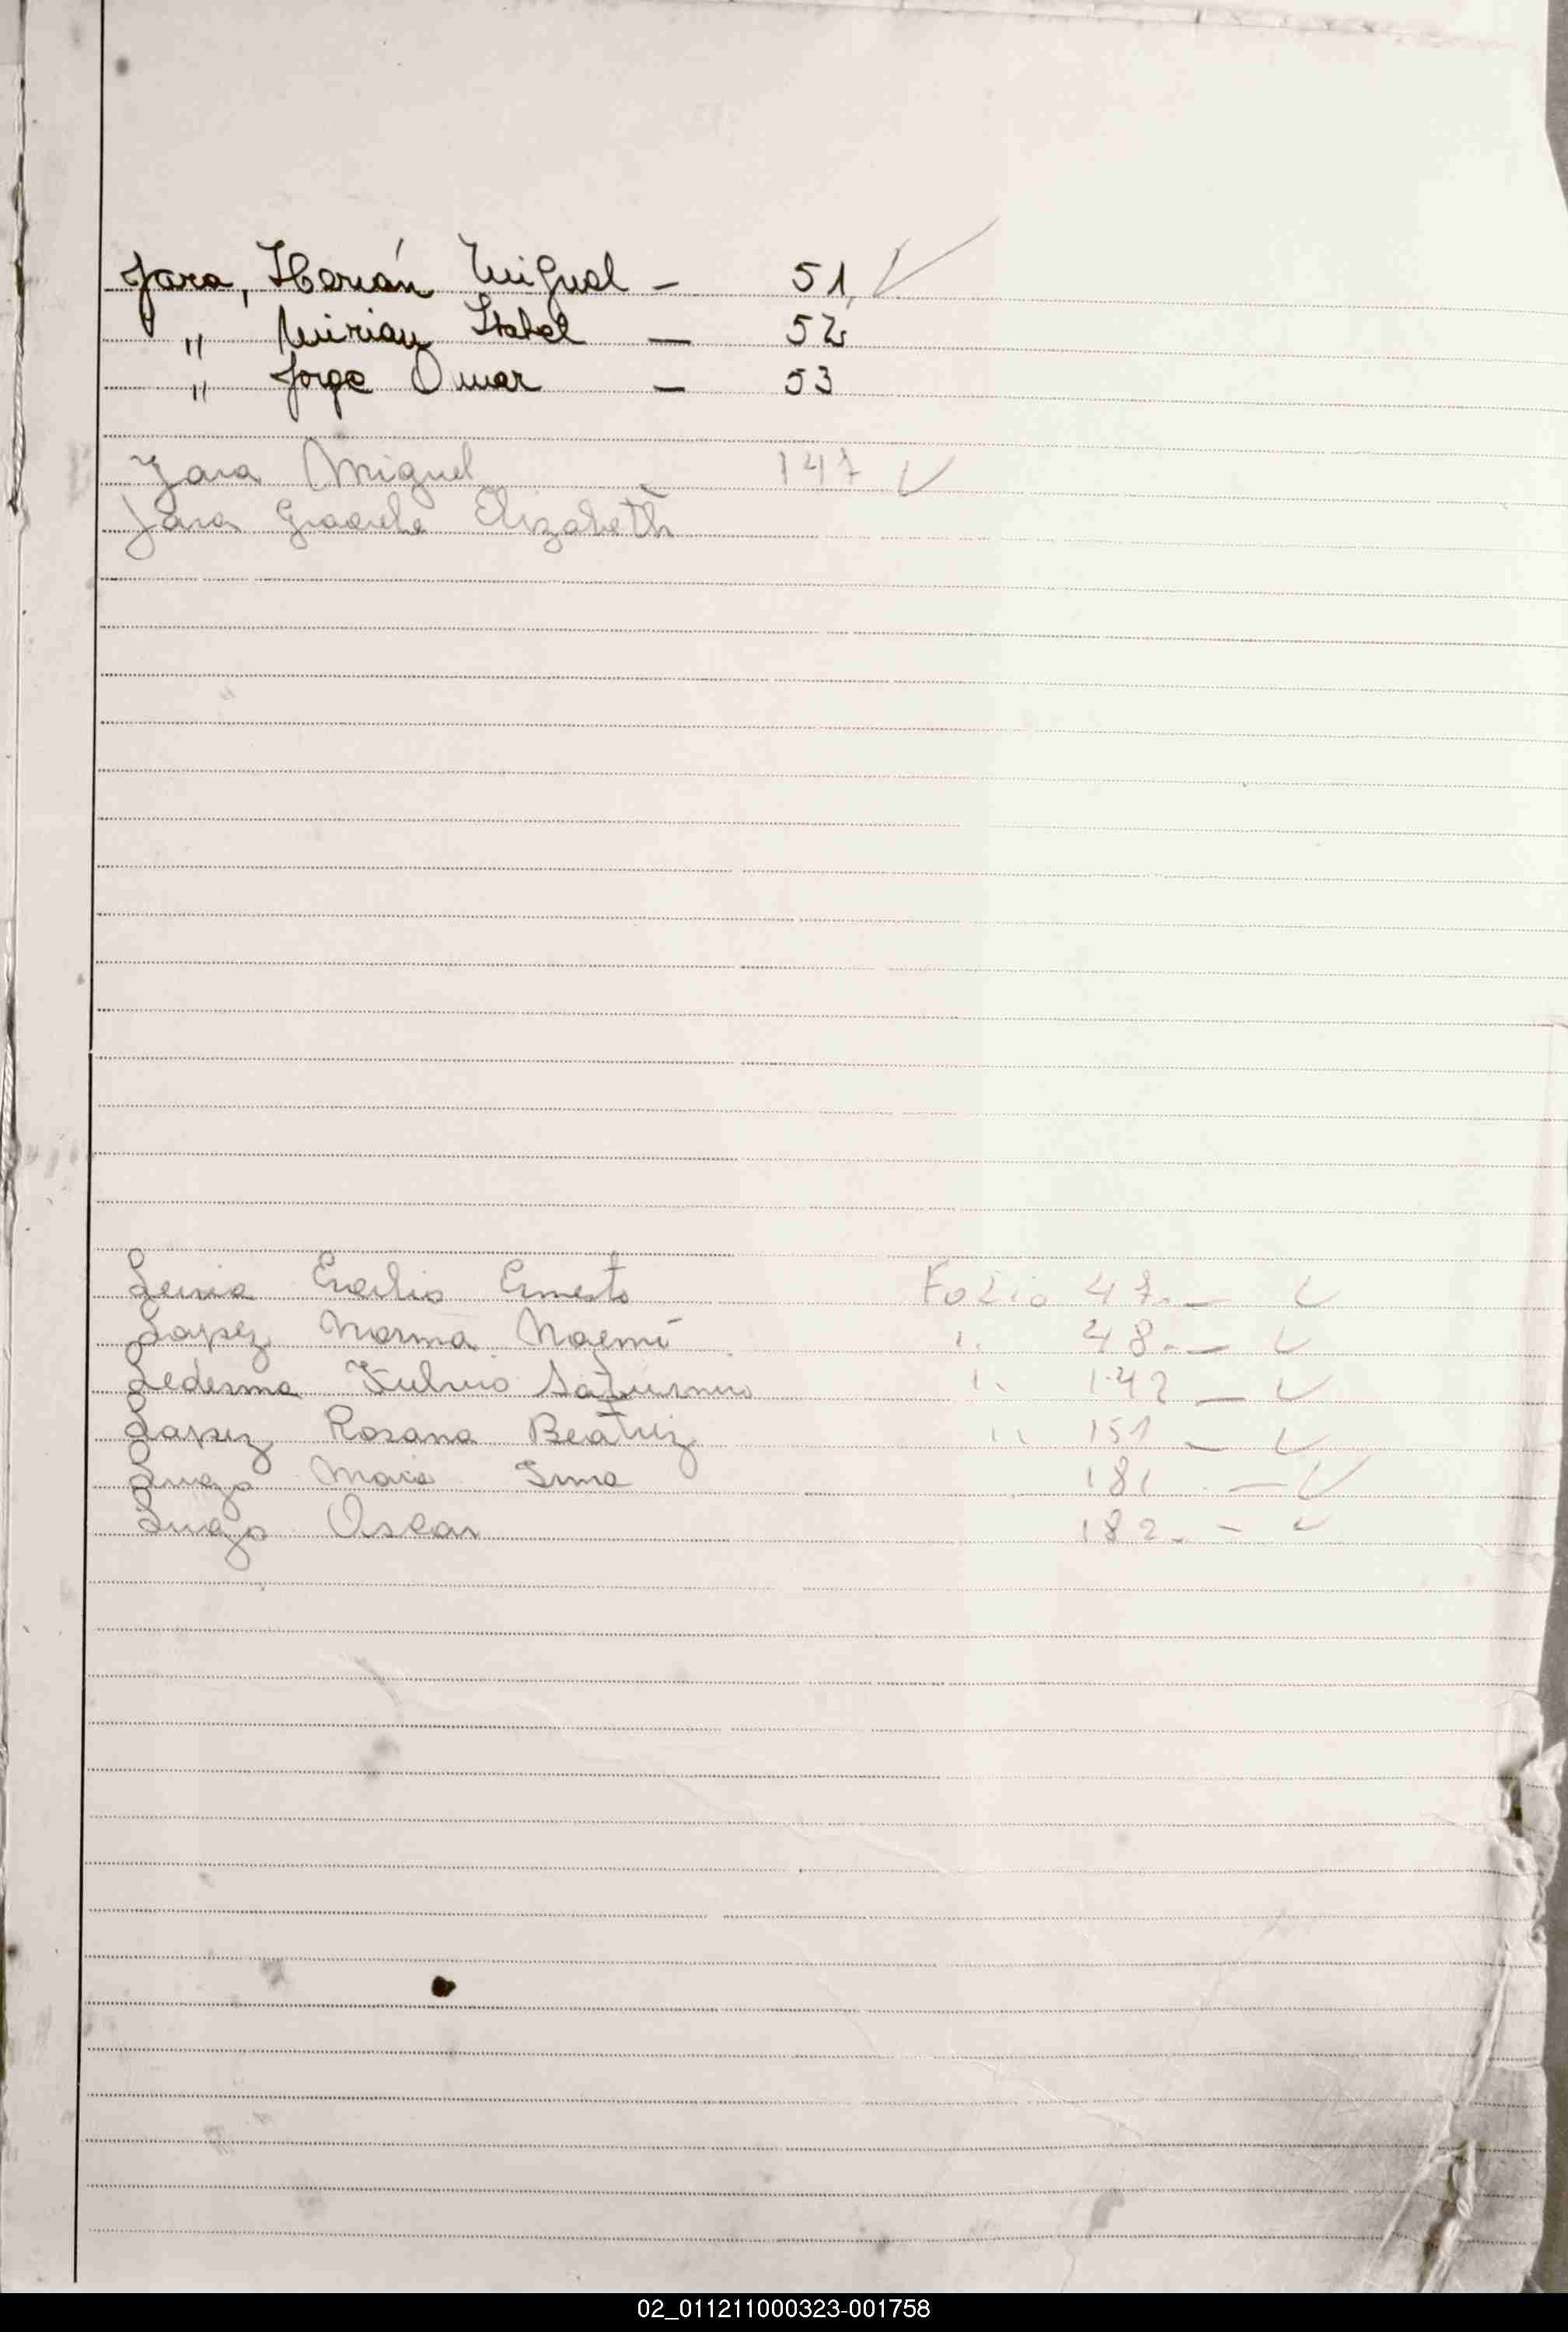 Jara, Hernán Miguel - 51 ✓
" Mirian Isabel — 52
" Jorge Omar — 53
Jara Miguel 147 ✓
Jara Graciela Elizabeth
Ernesto Folio 47.— ✓
Lopez Norma Noemí " 48.— ✓
Ledesma Saturnino " 142 — ✓
Lopez Rosana Beatriz " 151 — ✓
Lugo Maria Irma 181 — ✓
Lugo Oscar 182. - ✓
02_011211000323-001758